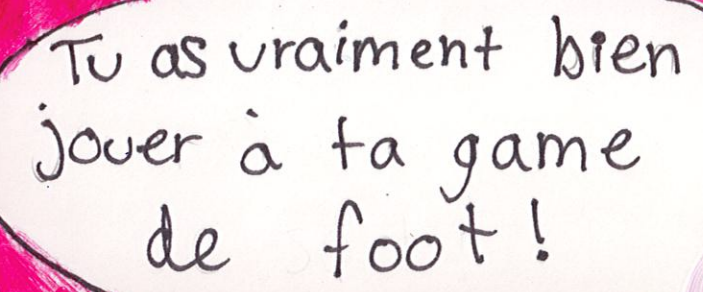 Tu as vraiment bien
jouer à ta game
de foot!